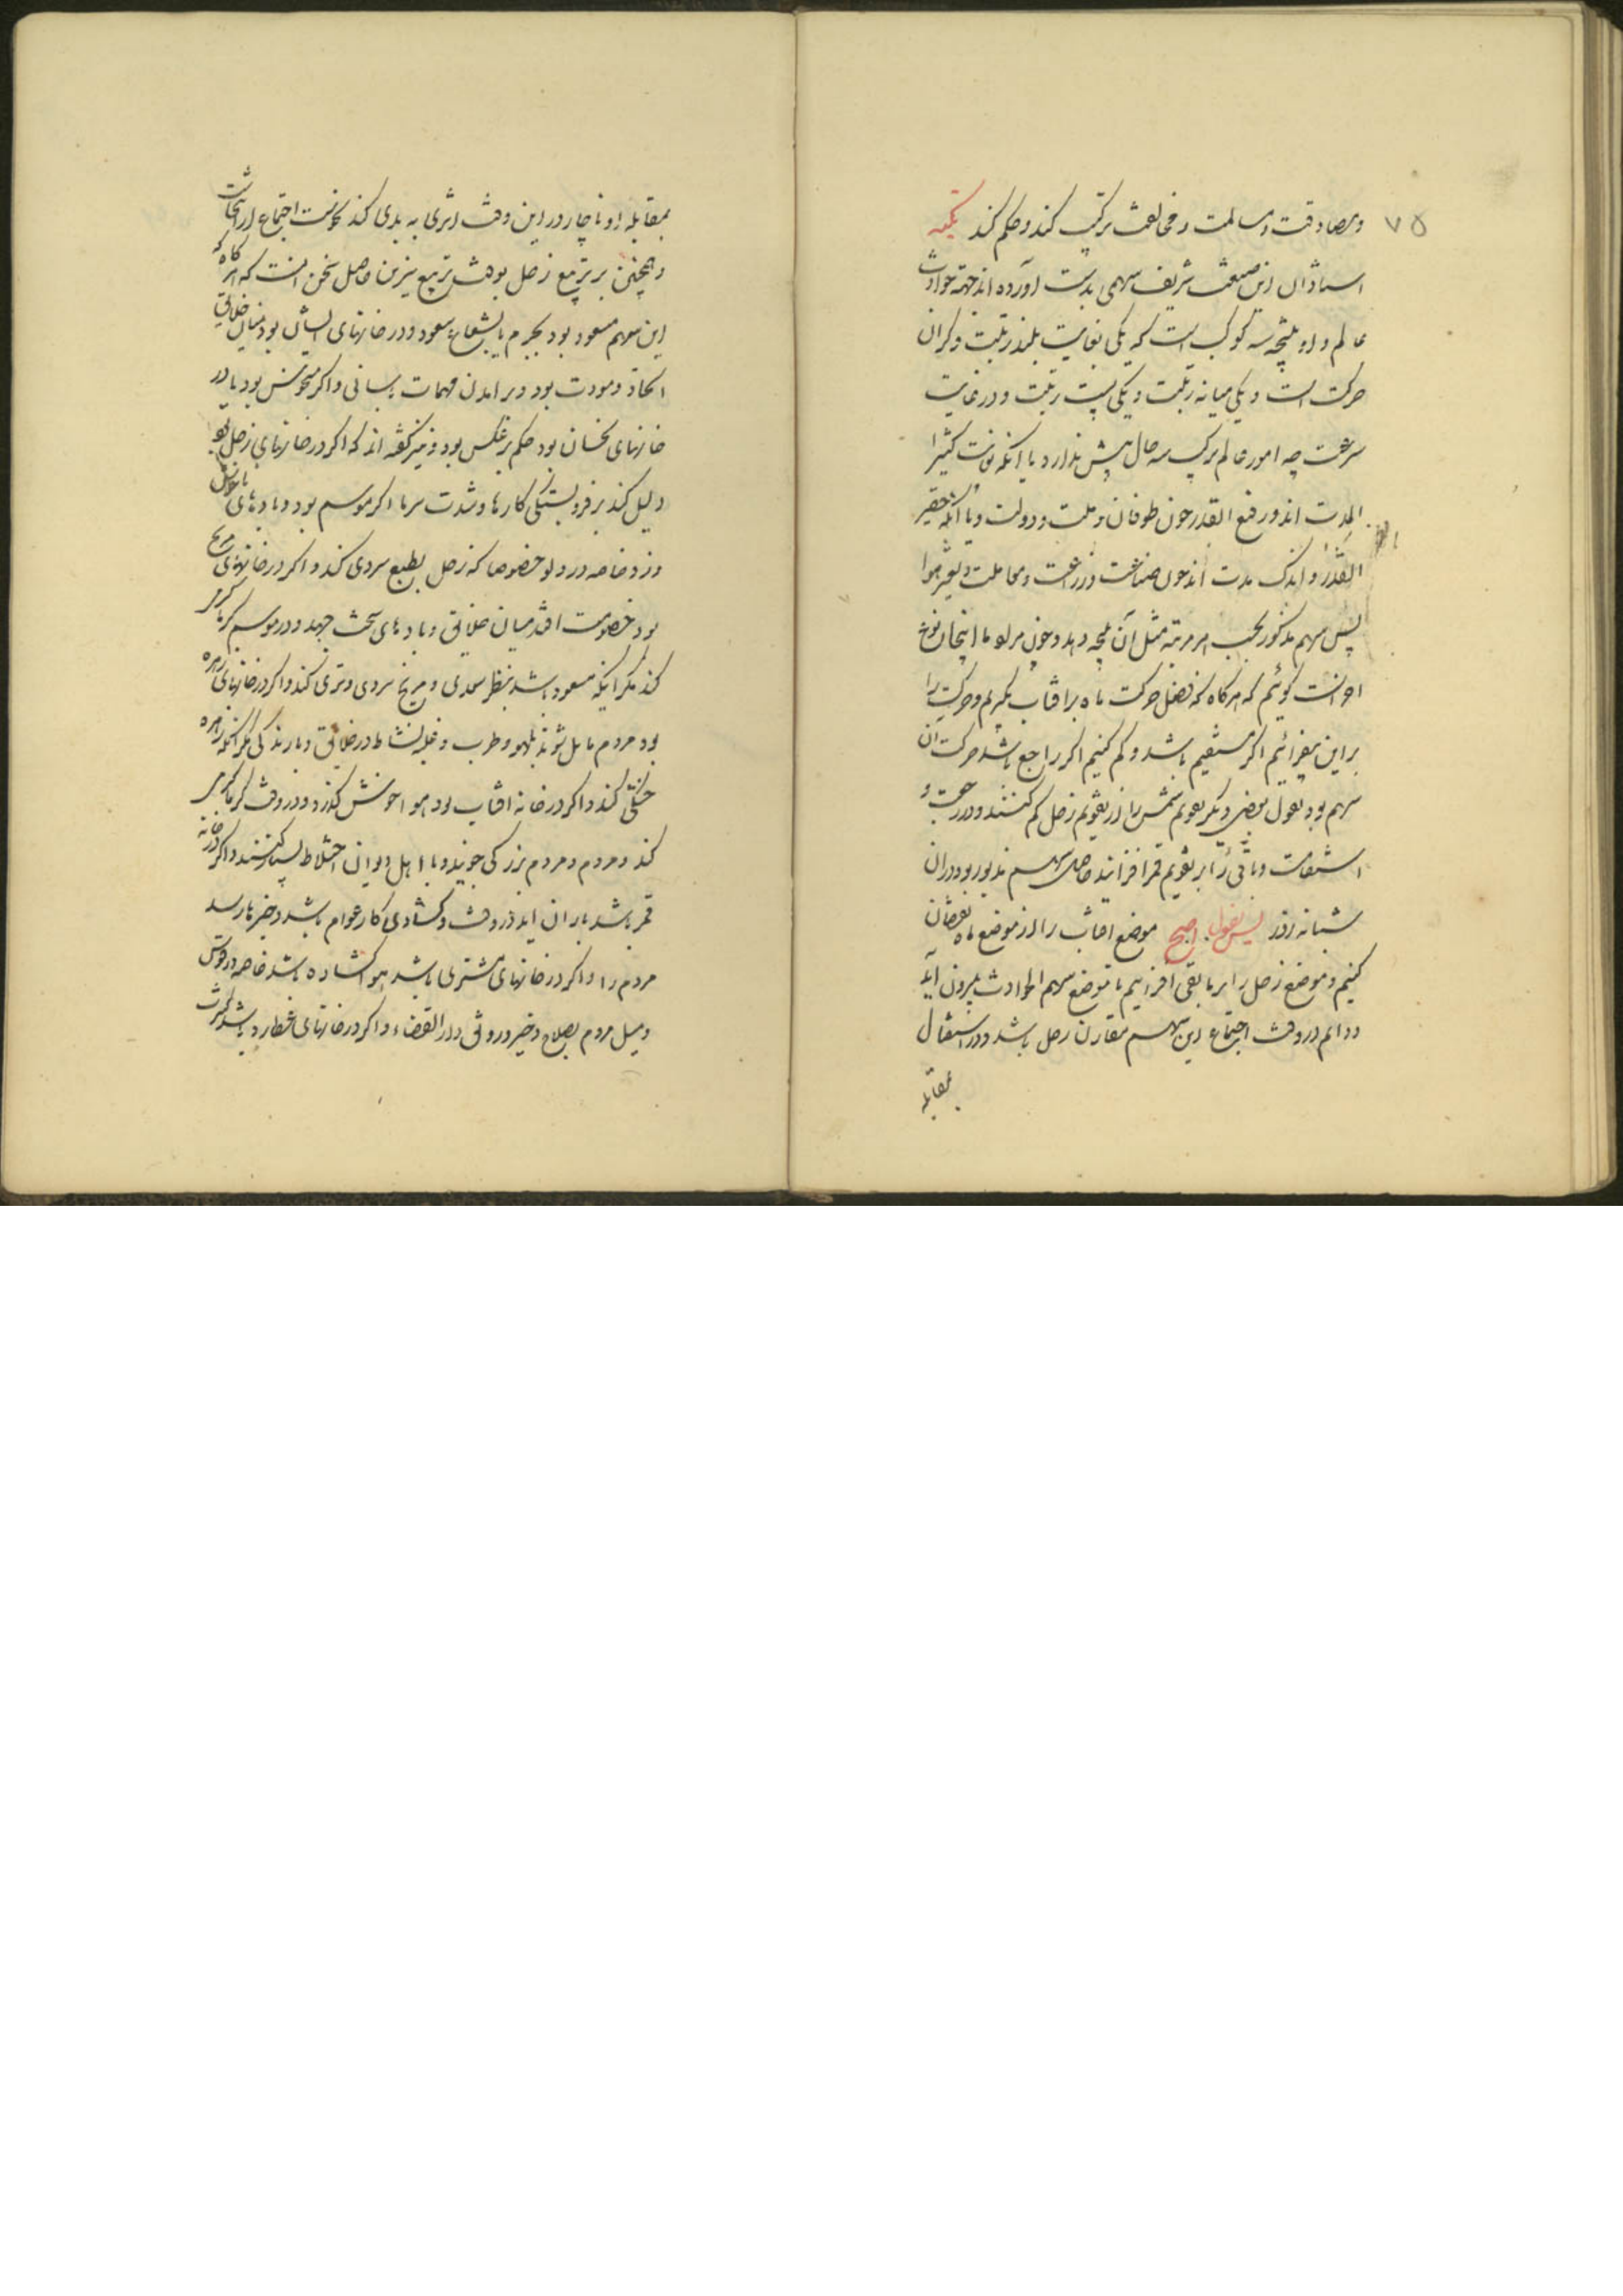 ۷۵
ومصادقت ومسالمت ومخالفت ترکیب کند وحکم کند تکمله
استادان این صنعت شریف سهمی بدست آورده اند جهة حوادث
عالم واو نتیجه سه کوکب است که یکی بغایت بلند رتبت وکران
حرکت است ویکی میانه رتبت ویکی پست رتبت ودر غایت
سرعت چه امور عالم ترکیب سه حال بیش ندارد یا آنکه کثیر
المدت اند ورفیع القدر چون طوفان وملت ودولت ویا آنکه حقیر
القدر واندک مدت اند چون صناعت وزراعت ومعاملت وتغیر هوا
پس سهم مذکور بحسب هر مرتبه مثل آن نتیجه دهد وچون مراد ما اینجا
احوالست کوئیم که هرکاه که فضل حرکت ماه بر افتاب بکیریم وحرکت را
براین بیفزائیم اکر مستقیم باشد وکم کنیم اکر راجع باشد حرکت ان
سهم بود بقول بعضی دیکر تقویم شمس را از تقویم زحل کم کنند ودر رجعت و
استقامت وباقی را بر تقویم قمر افزایند حاصل سهم مذبور بود در ان
شبانه روز پس بقول اصح موضع افتاب را از موضع ماه نقصان
کنیم وموضع زحل را بر مابقی افزاییم تا موضع سهم الحوادث بیرون آید
ودایم در وقت اجتماع این سهم مقارن زحل باشد ودر استقبال
بمقابله
بمقابله او ناچار در این وقت اثری به بدی کند
وهمچنین بر تربیع زحل بوقت تربیع نیرین حاصل سخن انست که هرکاه که
این سهم مسعود بود بجرم یا بشعاع سعود ودر خانهای ایشان بود میان خلایق
اتحاد ومودت بود وبر امدن مهمات بآسانی واکر منحوس بود یا در
خانهای نحسان بود حکم برعکس بود ونیز کفته اند که اکر در خانهای زحل بود
دلیل کند بر فروبستکی کارها وشدت سرما اکر موسم بود وبادهای ناخوش
وزد خاصه در دلو خصوصا که زحل بطبع سردی کند واکر در خانهای مریخ
بود خصومت افتد میان خلایق وبادهای سخت جهد ودر موسم کرما کرمی
کند مکر اینکه مسعود باشد بنظر سعدی ومریخ سردی وتری کند واکر در خانهای زهره
بود مردم مایل شوند بلهو وطرب وغلبه نشاط در خلایق وبارندکی مکر انکه زهره
خشکی کند واکر در خانه افتاب بود هوا خوش کذرد ودر وقت کرما کرمی
کند ومردم ومردم بزرکی جویند وبا اهل دیوان اختلاط بسیار کنند واکر در خانه
قمر باشد باران اید در وقت وکشادی کار عوام باشد وخبرها رسد
مردم را واکر در خانهای مشتری باشد هوا کشاده باشد خاصه در قوس
ومیل مردم بصلاح وخیر ورونق دار القضاء واکر در خانهای عطارد باشد کثرت